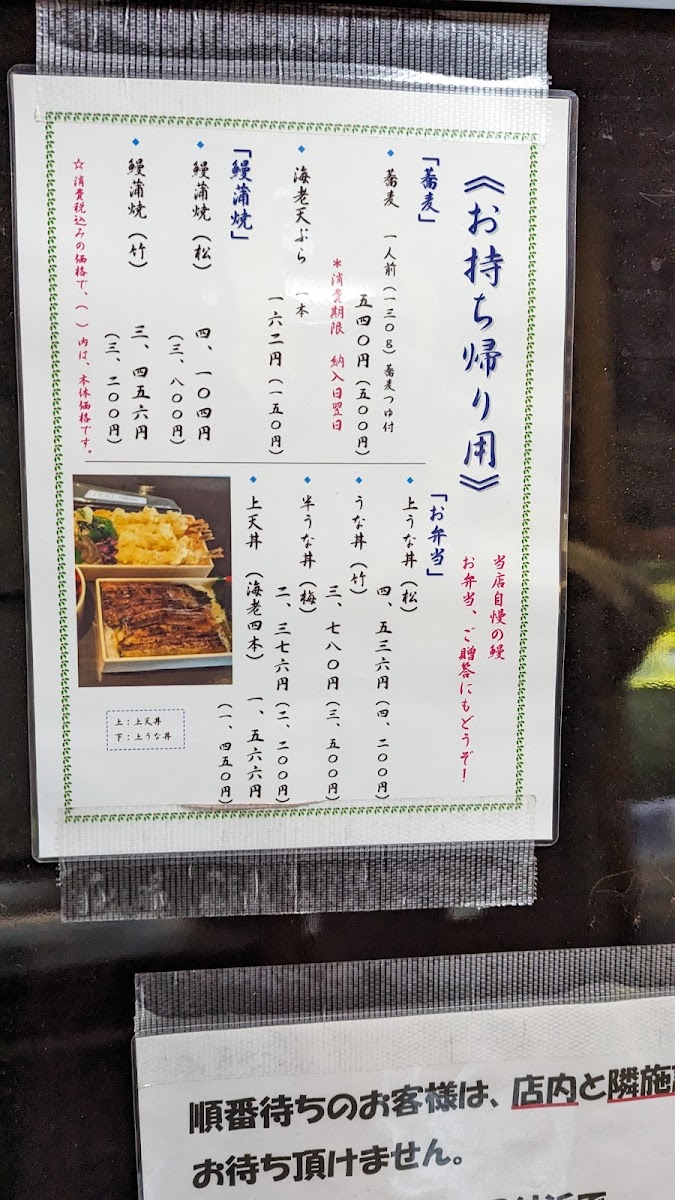 《お持ち帰り用》
当店自慢の鰻
お弁当、ご贈答にもどうぞ！
「蕎麦」
蕎麦 一人前（一三〇g）蕎麦つゆ付
五四〇円（五〇〇円）
＊消費期限 納入日翌日
海老天ぷら 一本
一六二円（一五〇円）
「鰻蒲焼」
鰻蒲焼（松） 四、一〇四円
（三、八〇〇円）
鰻蒲焼（竹） 三、四五六円
（三、二〇〇円）
☆消費税込みの価格で、（ ）内は、本体価格です。
「お弁当」
上うな丼（松）
四、五三六円（四、二〇〇円）
うな丼（竹）
三、七八〇円（三、五〇〇円）
半うな丼（梅）
二、三七六円（二、二〇〇円）
上天丼（海老四本） 一、五六六円
（一、四五〇円）
上：上天丼
下：上うな丼
順番待ちのお客様は、店内と隣施
お待ち頂けません。